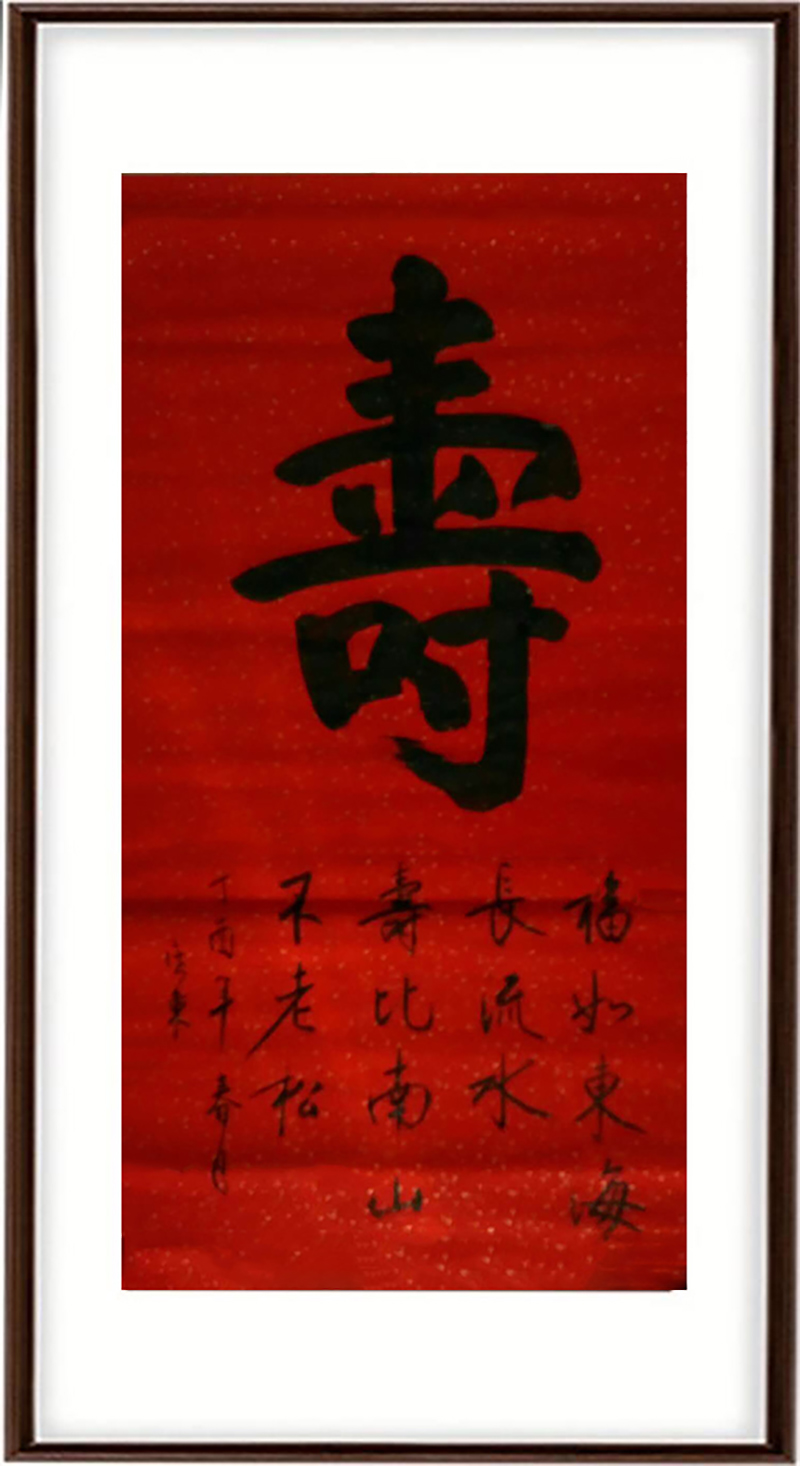 壽
福如東海
長流水
壽比南山
不老松
丁酉年春月